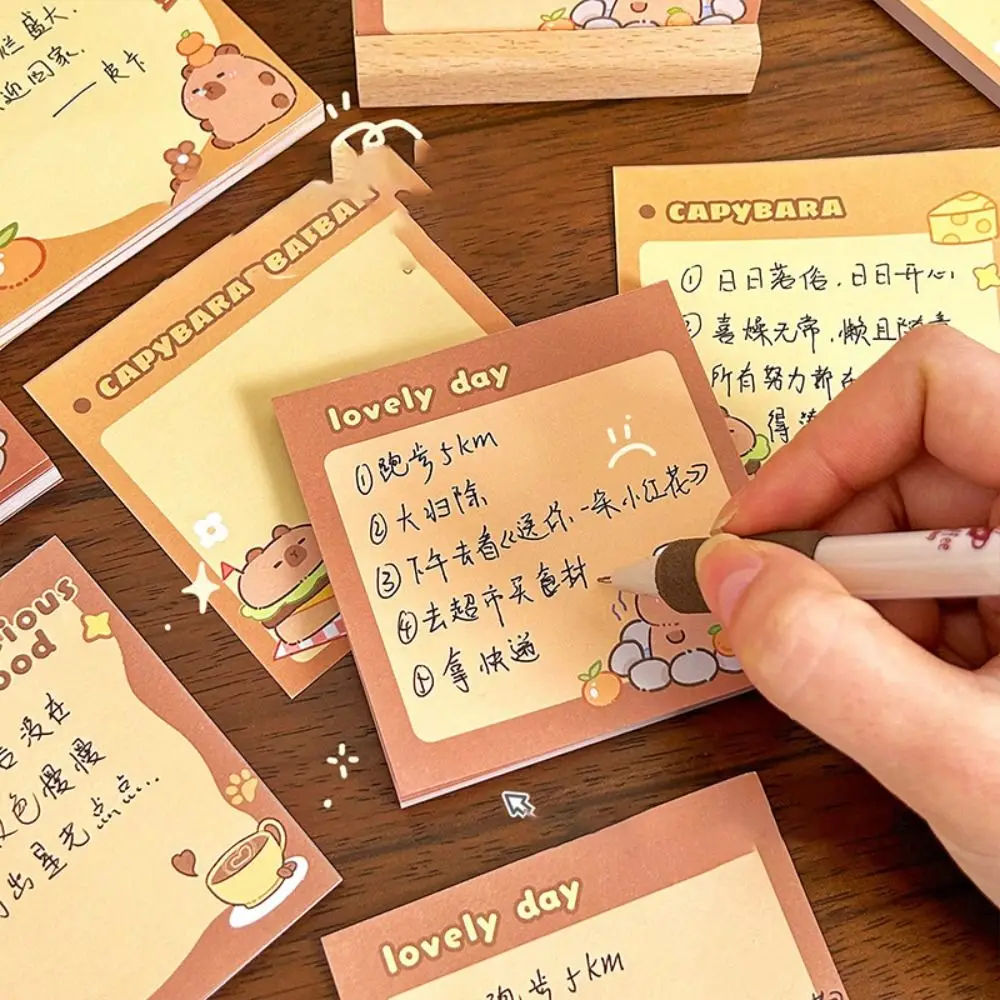 烂盛大.
迎回家.
——皮卡
CAPYBARA
CAPYBARA
① 日日落俗，日日开心
喜燥无常，懒且随意
所有努力都在
得
lovely day
①跑步5km
②大扫除
③下午去看《送你一朵小红花》
④去超市买食材
⑤拿快递
没在
色慢慢
出星光点点...
lovely day
跑步5km